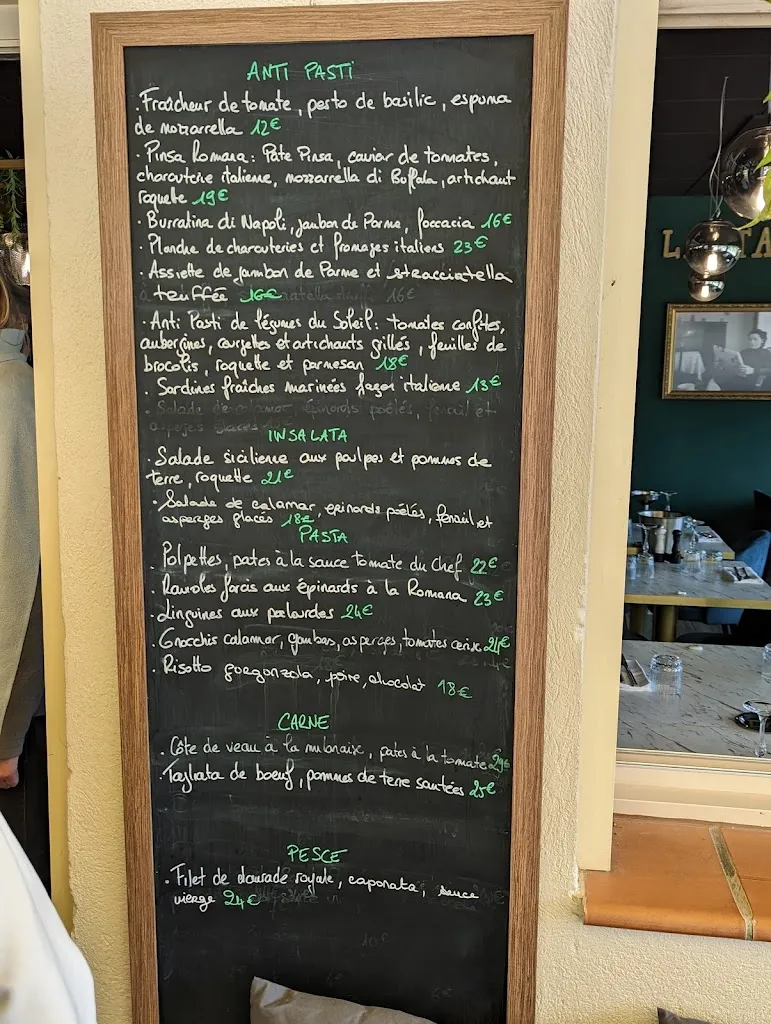 ANTI PASTI
. Fraîcheur de tomate, pesto de basilic, espuma
de mozzarella 12€
. Pinsa Romana : Pate Pinsa, caviar de tomates,
charcuterie italienne, mozzarella di Buffala, artichaut
roquette 19€
. Burratina di Napoli, jambon de Parme, foccacia 16€
. Planche de charcuteries et fromages italiens 23€
. Assiette de jambon de Parme et stracciatella
truffée 16€
16€
. Anti Pasti de légumes du Soleil : tomates confites,
aubergines, courgettes et artichauts grillés, feuilles de
brocolis, roquette et parmesan 18€
. Sardines fraîches marinées façon italienne 13€
. Salade de calamar, épinards poêlés, fenouil et
asperges glacés
INSALATA
. Salade sicilienne aux poulpes et pommes de
terre, roquette 21€
. Salade de calamar, epinards poêlés, fenouil et
asperges glacés 18€
PASTA
. Polpettes, pates à la sauce tomate du Chef 22€
. Ravioles farcis aux épinards à la Romana 23€
. Linguines aux palourdes 24€
. Gnocchis calamar, gambas, asperges, tomates cerise 24€
. Risotto gorgonzola, poire, chocolat 18€
CARNE
. Côte de veau à la milanaise, pates à la tomate 29€
. Tagliata de boeuf, pommes de terre sautées 25€
PESCE
. Filet de daurade royale, caponata, sauce
vierge 24€